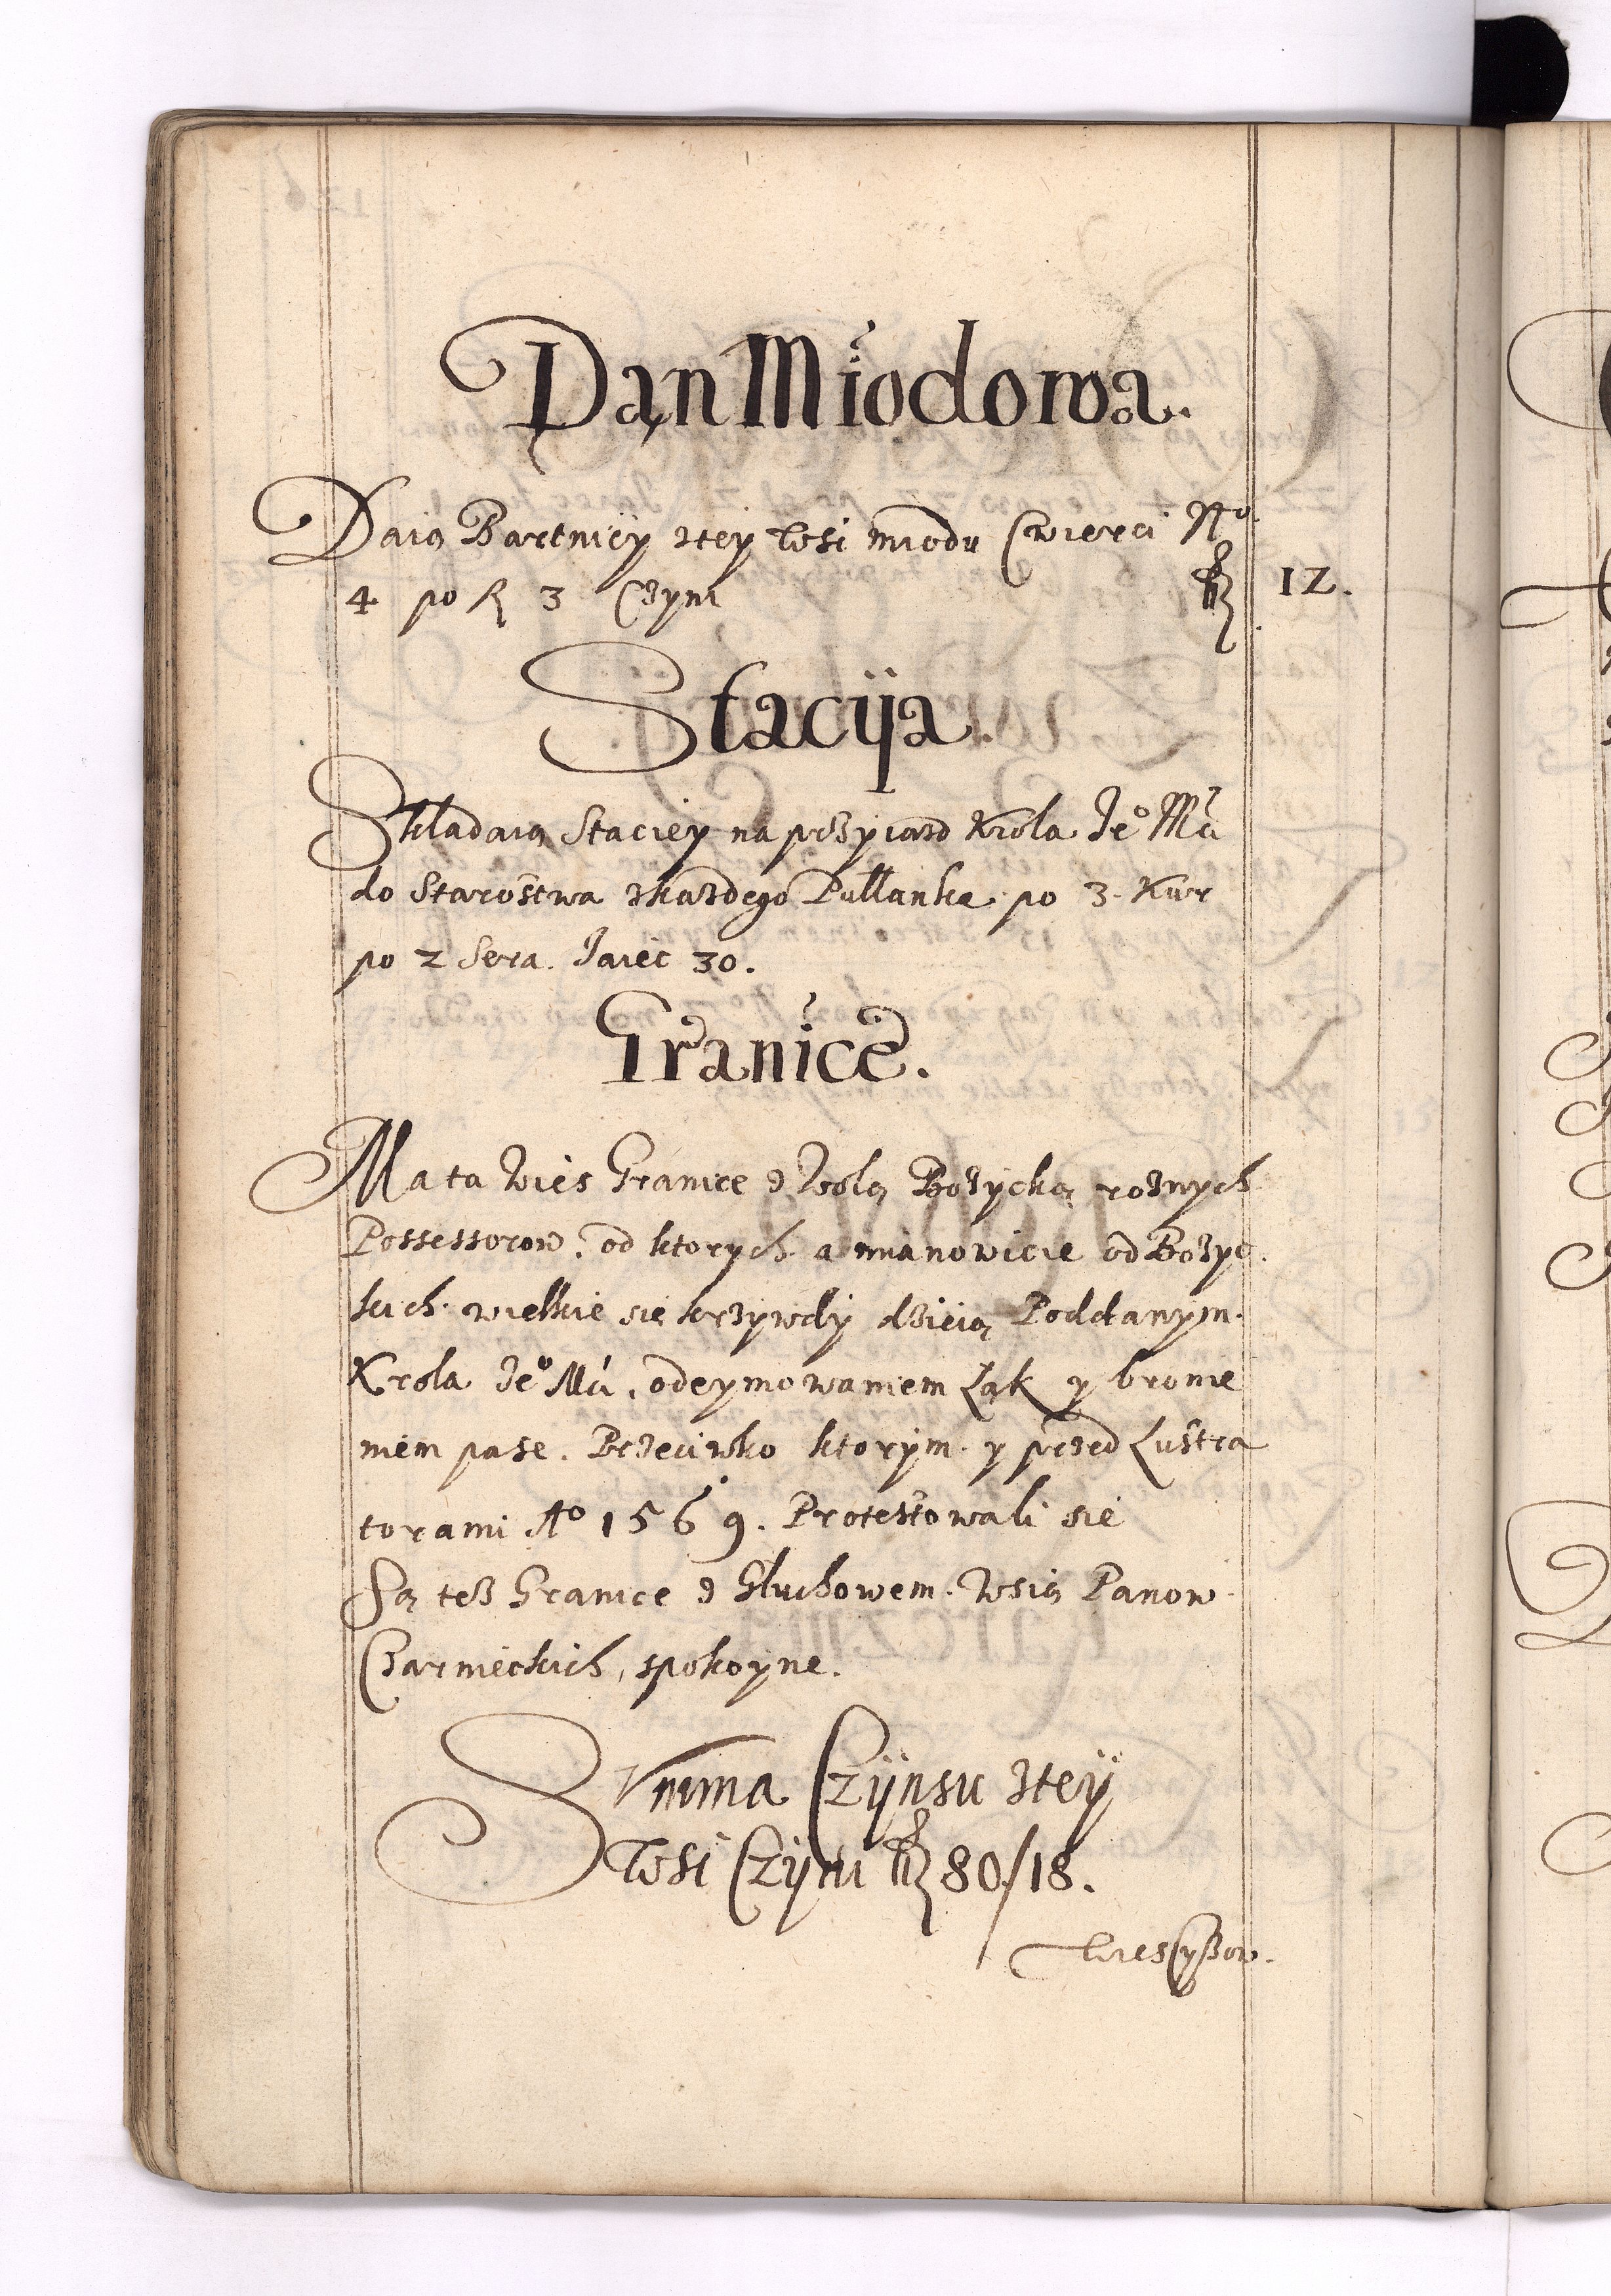 Dan Miodowa.
Daią Bartnicy ztey Wsi miodu Cwierci No
4 po fl 3 Czyni fl 12.
Stacÿa.
Składaią Staciey na przyiazd Krola Jeo Mći
do Starostwa zkazdego Pułłanka po 3. Kur
po 2 Sera. Jaiec 30.
Granice.
Ma ta Wies Granice z Wolą Bozycką roznych
Possessorow. od ktorych a mianowicie od Bozyc
kich wielkie się krzywdy dzieią Poddanym.
Krola Jeo Mći, odeymowaniem Łąk y bronie
niem pasz. Przeciwko ktorym y przed Lustra
torami Ao 1569. Protestowali sie
Są tesz Granice z Głuchowem. Wsią Panow
Czarnieckich, spokoyne.
Summa Czÿnsu ztey
Wsi Czÿni fl 80/18.